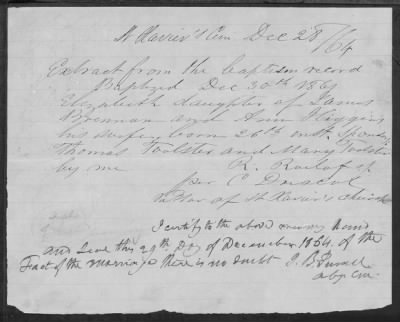 St Xavier's Cin Dec 28/64
Extract from the baptism record
Baptized Dec 30th 1861
Elizabeth daughter of James
Brennan and Ann Higgins
his wife, born 26th inst. Spons:
Thomas Tolster and Mary Tolster
by me R.
per C Driscol
Pastor of St Xavier's church
I certify to the above under my hand
and Seal this 29th Day of December 1864. of the
Fact of the marriage there is no doubt J. B. Purcell
Abp Cin.